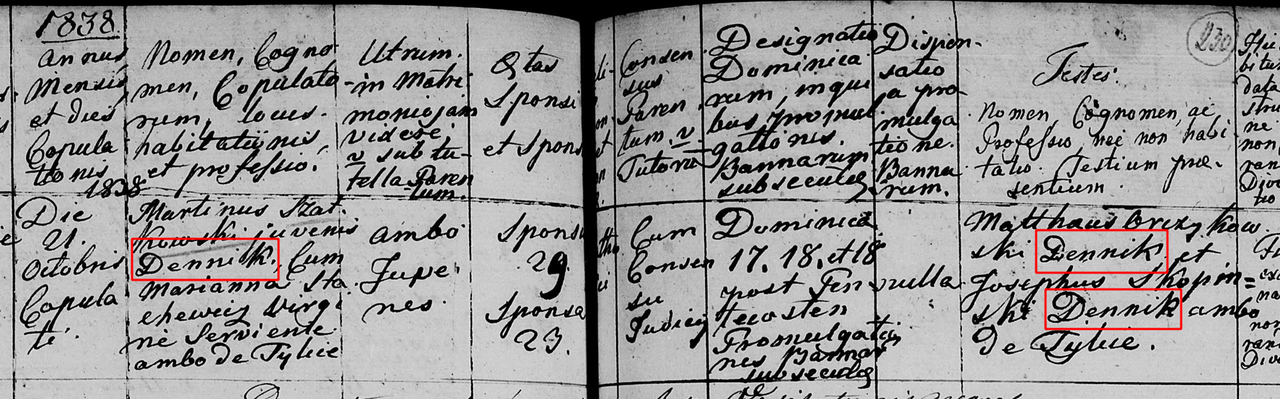 1838
Annus
Mensis
et dies
Copula
tionis
1838
Nomen, Cogno
men, Copulato
rum, locus
habitationis,
et professio.
Utrum
in Matri
monio jam
videre
v sub tu
tella Paren
tum.
Ætas
Sponsi
et Spons
Consen
sus
Paren
tum v
Tutoru
Designatio
Dominica
rum, in qui
bus promul
gationis
Bannarum
subsecula
Dispen-
satio
a pro
mulga
tione
Banna
rum.
230
Testes.
Nomen, Cognomen, ac
Professio, nec non habi
tatio Testium præ-
sentium.
Die
21.
Octobris
Copula
ti.
Martinus Szat-
kowski juvenis
Dennik. Cum
Marianna Sta
chewicz Virgi
ne Serviente
ambo de Tylice
ambo
Juve
nes
Sponsi
29
Sponsa
23.
Cum
Consen
su
Judicij
Dominica
17. 18. et 18
post Pen
tecosten
Promulgatio
nes Bannar
subsecula
nulla
Matthaus Orczykow
ski Dennik. et
Josephus Skopin=
ski Dennik ambo
de Tylice.